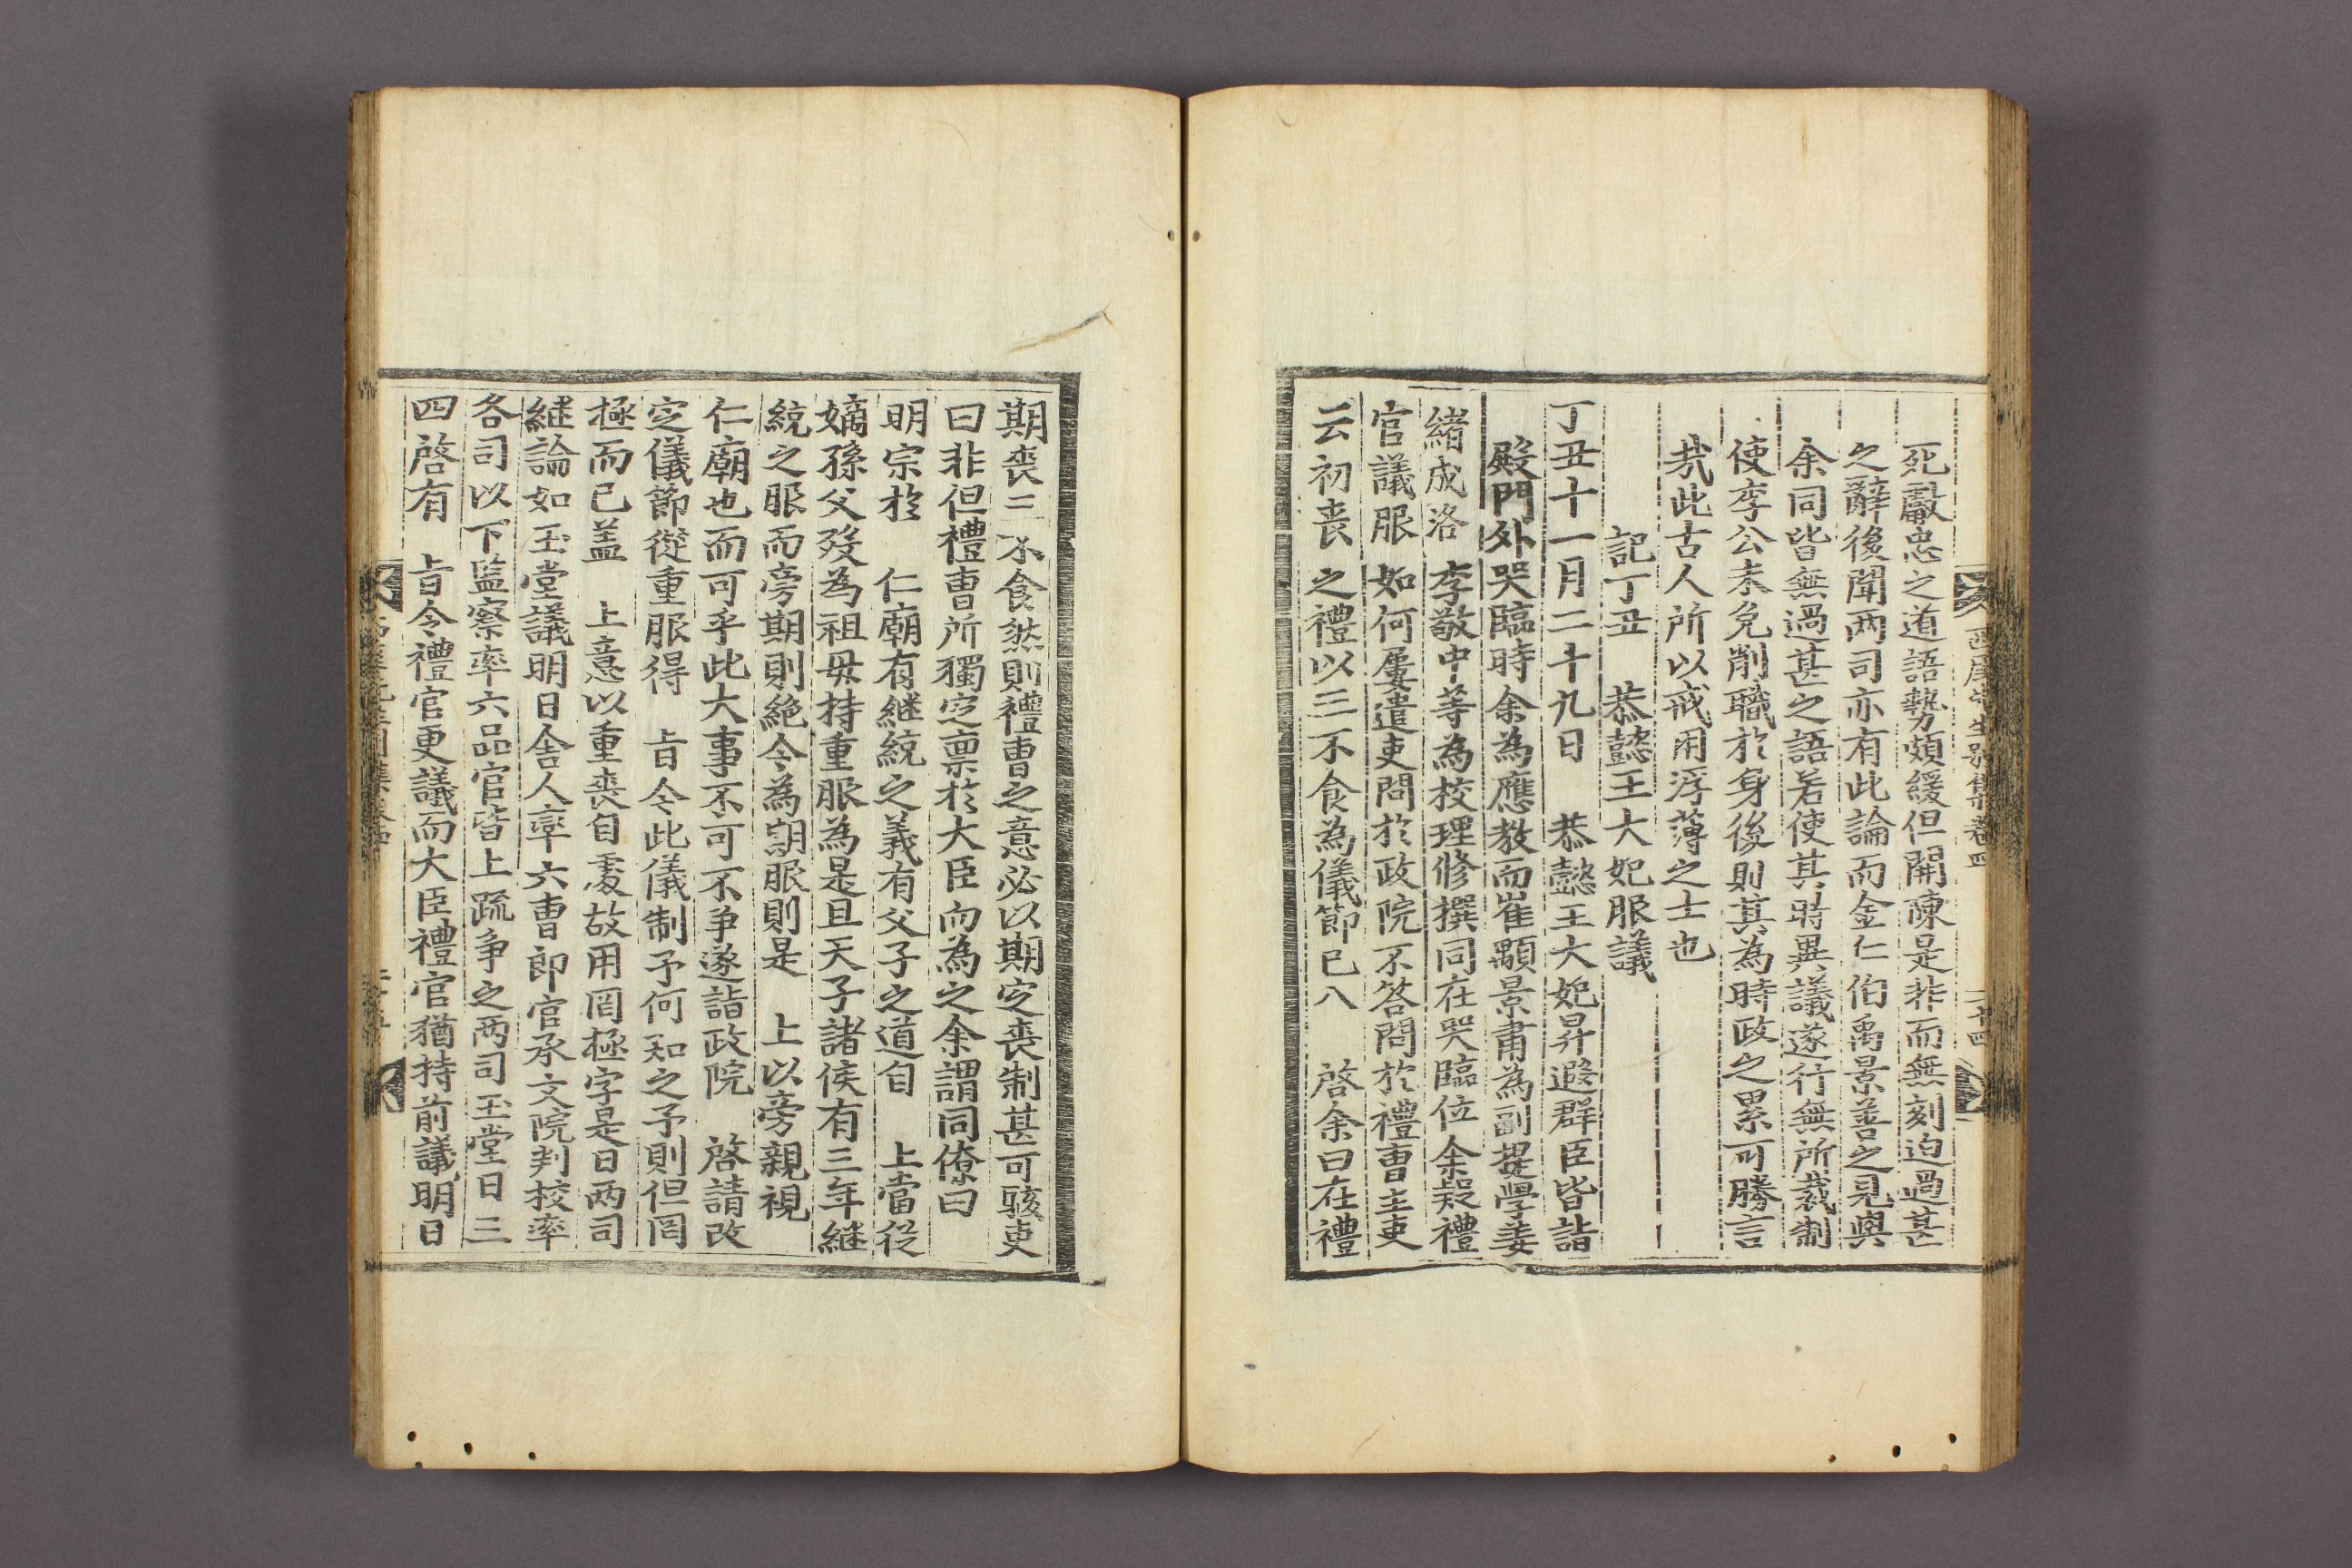 死獻忠之道語勢頗緩但開陳是非而無刻迫過甚
之辭後聞兩司亦有此論而金仁伯禹景善之見與
余同皆無過甚之語若使其時異議遂行無所裁制
使李公未免削職於身後則其為時政之累可勝言
㢤此古人所以戒用浮薄之士也
記丁丑 恭懿王大妃服議
丁丑十一月二十九日 恭懿王大妃昇遐群臣皆詣
殿門外哭臨時余為應教而崔顒景肅為副提學姜
緒成洛 李敬中等為校理修撰同在哭臨位余疑禮
官議服 如何屢遣吏問於政院不答問於禮曹主吏
云初喪 之禮以三不食為儀節已入 啓余曰在禮
期喪三不食然則禮曹之意必以期定喪制甚可駭吏
曰非但禮曹所獨定禀於大臣而為之余謂同僚曰
明宗於 仁廟有継統之義有父子之道自 上當從
嫡孫父歿為祖母持重服為是且天子諸侯有三年継
統之服而旁期則絶今為朞服則是 上以旁親視
仁廟也而可乎此大事不可不爭遂詣政院 啓請改
定儀節從重服得 旨令此儀制予何知之予則但罔
極而已盖 上意以重喪自處故用罔極字是日兩司
継論如玉堂議明日舍人率六曹郎官承文院判校率
各司以下監察率六品官皆上疏爭之兩司玉堂日三
四啓有 旨令禮官更議而大臣禮官猶持前議明日